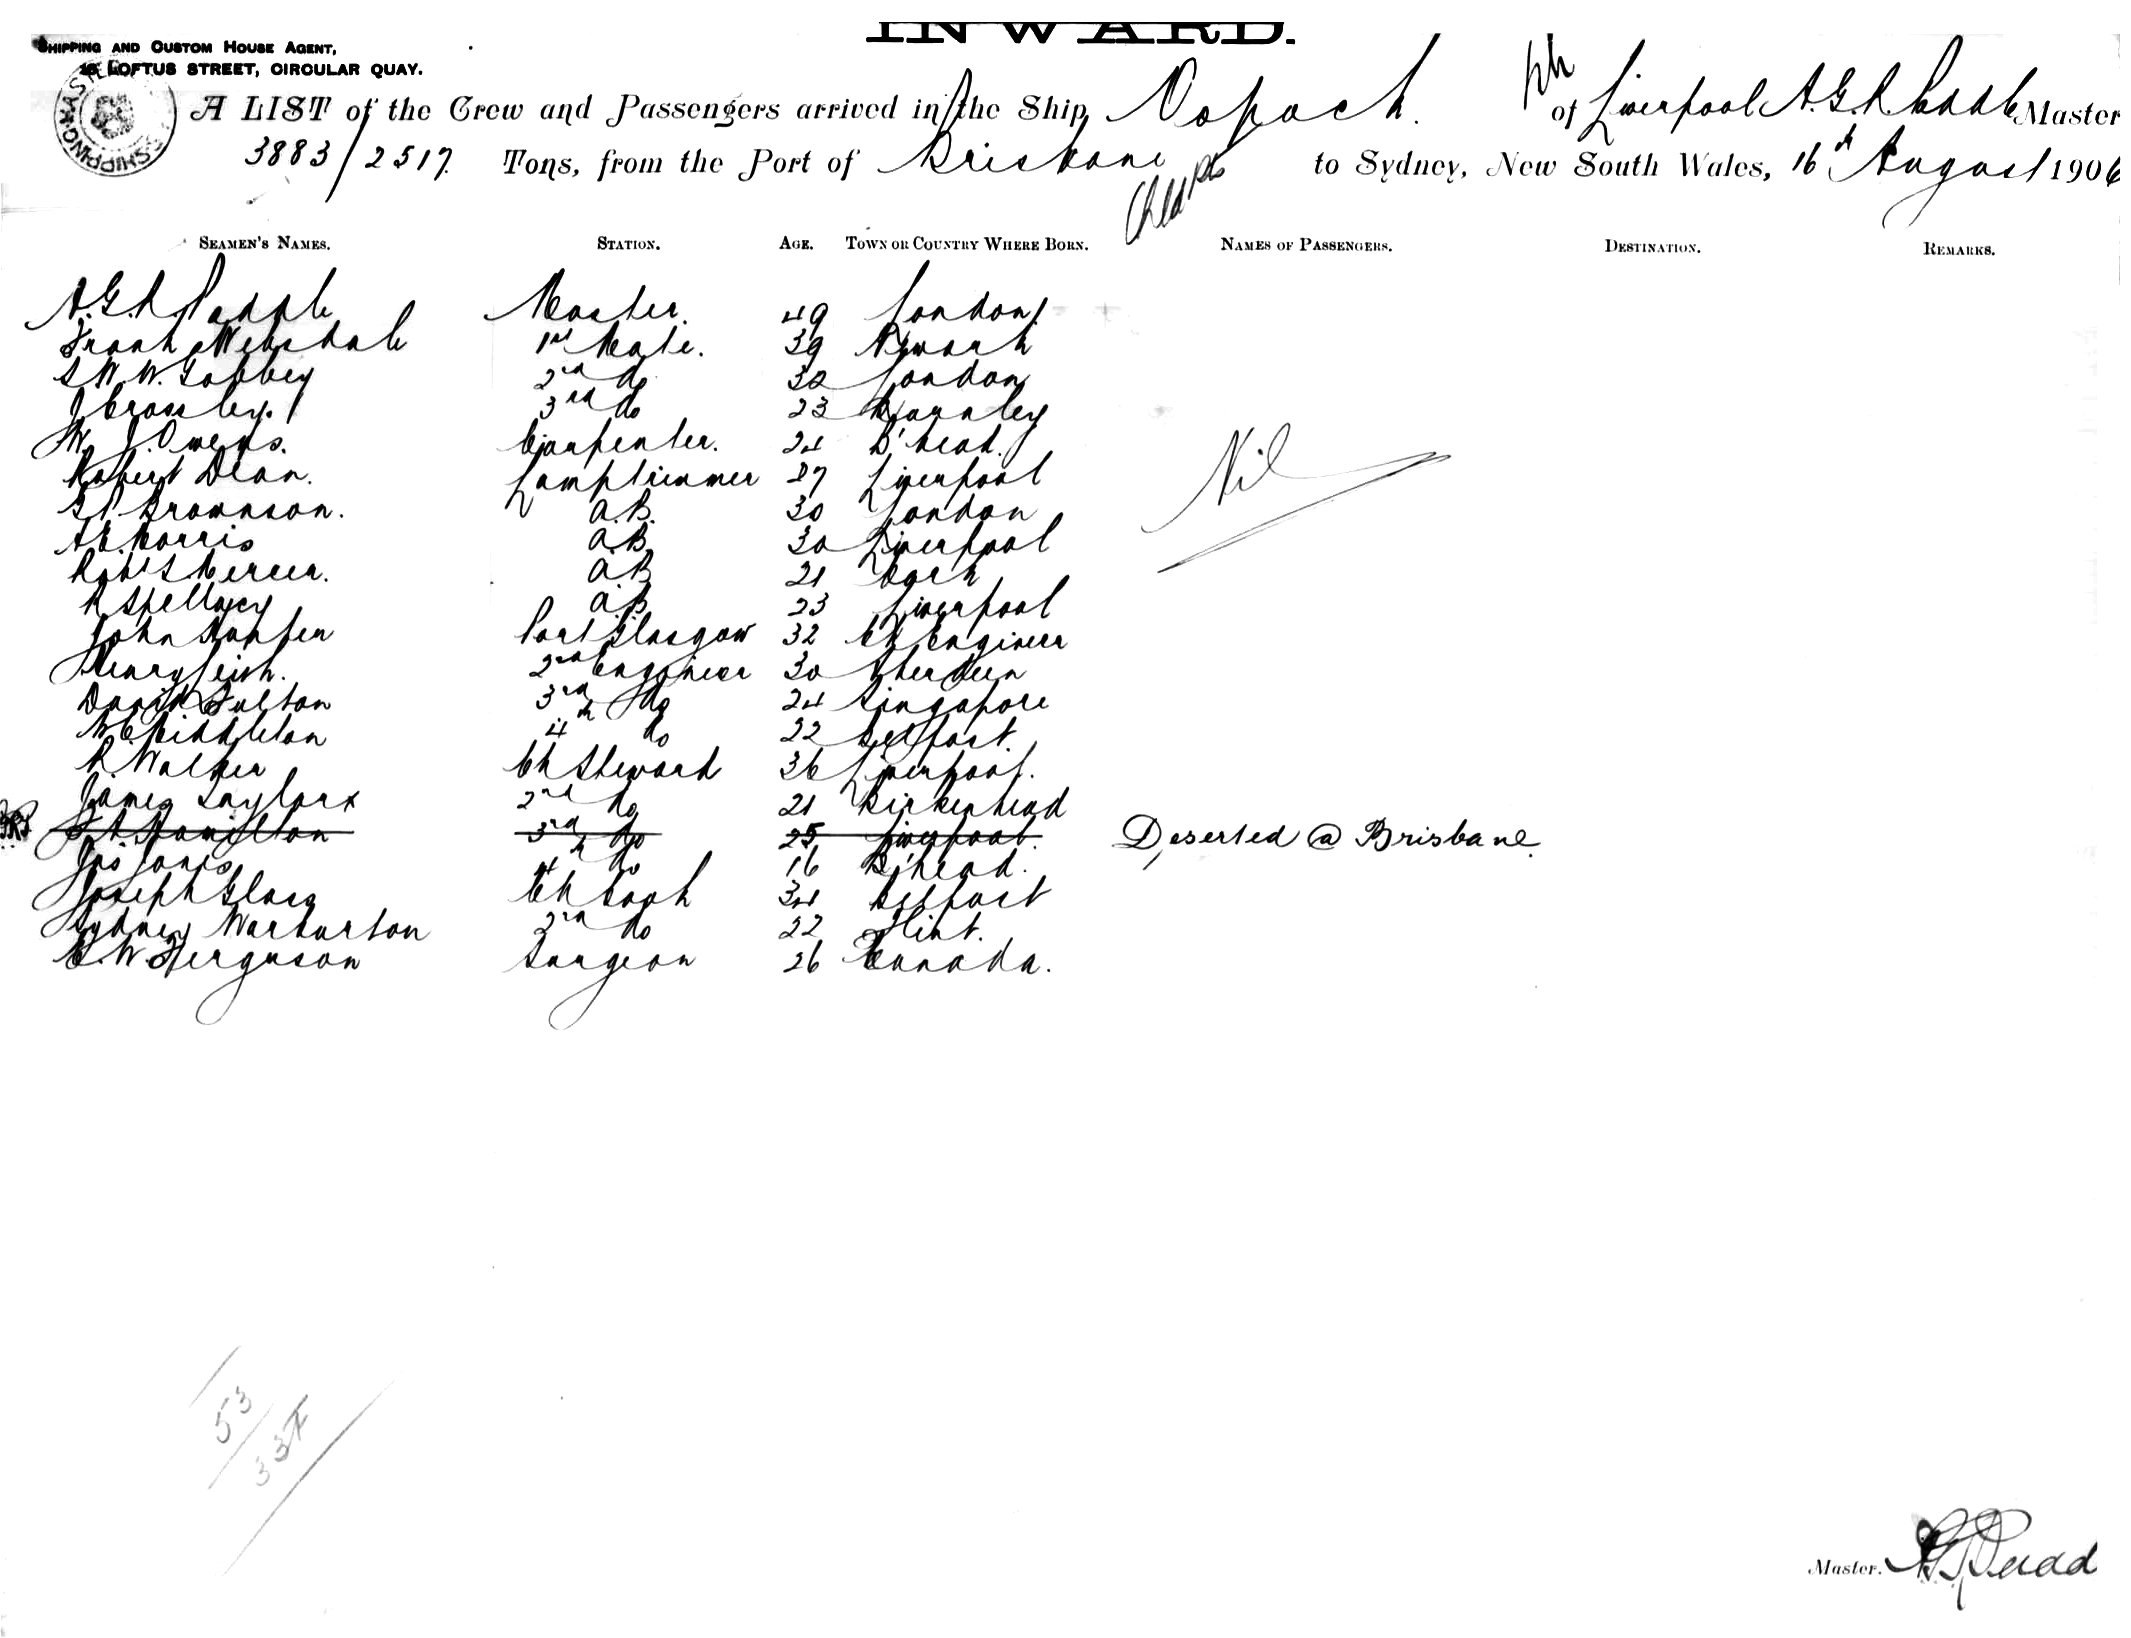 INWARD.
SHIPPING AND CUSTOM HOUSE AGENT,
LOFTUS STREET, CIRCULAR QUAY.
A LIST of the Crew and Passengers arrived in the Ship of Liverpool A.G.R. Master
3883/2517. Tons, from the Port of Brisbane to Sydney, New South Wales, 16th August 1906
SEAMEN'S NAMES. STATION. AGE. TOWN OR COUNTRY WHERE BORN. NAMES OF PASSENGERS. DESTINATION. REMARKS.
A.G.R. Master. 49 London
Frank Websdale 1st Mate. 39 Newark
S W. W. 2nd do 32 London
J Crossley. 3rd do 23 Burnley
W. J. Owens. Carpenter. 24 B'head.
Robert Dean. Lamptrimmer 27 Liverpool
Brownson. A.B. 30 London
A.E. Morris A.B. 30 Liverpool
Robt S Mercer. A.B. 21 Cork
R Spellacy A.B. 23 Liverpool
John Port Glasgow 32 Ch Engineer
Henry Leith. 2nd Engineer 30 Aberdeen
David Fulton 3rd do 24 Singapore
W.C. Middleton 4th do 22 Belfast.
R. Walker Ch Steward 36 Liverpool.
James Taylor x 2nd do 21 Birkenhead
Hamilton 3rd do 25 Liverpool. Deserted @ Brisbane.
Jas Jones 4th do 16 B'head.
Joseph Glass Ch Cook 34 Belfast
Sydney Warburton 2nd do 22 Flint.
C. W. Ferguson Surgeon 26 Canada.
Nil
53
Master.